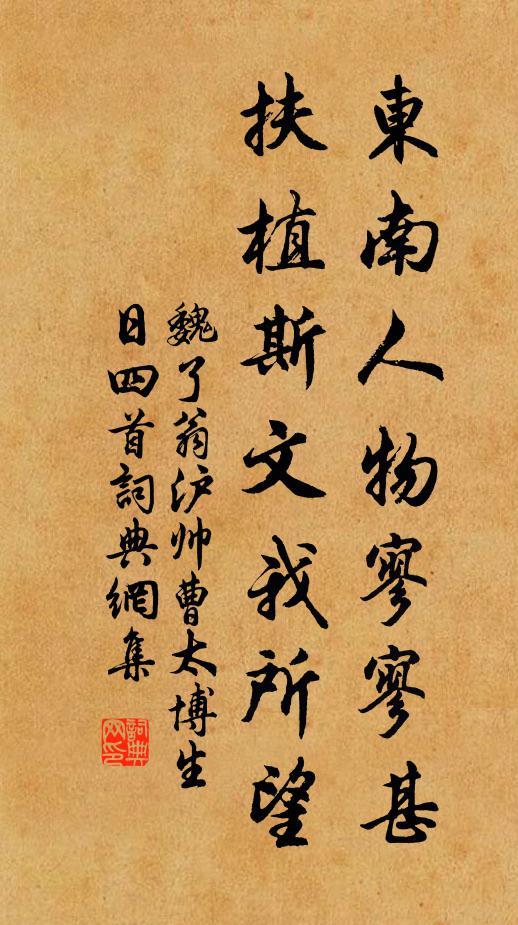 東南人物寥寥甚
扶植斯文我所望
魏了翁沪帅曹太博生
日四首詞典網集
詞典網印